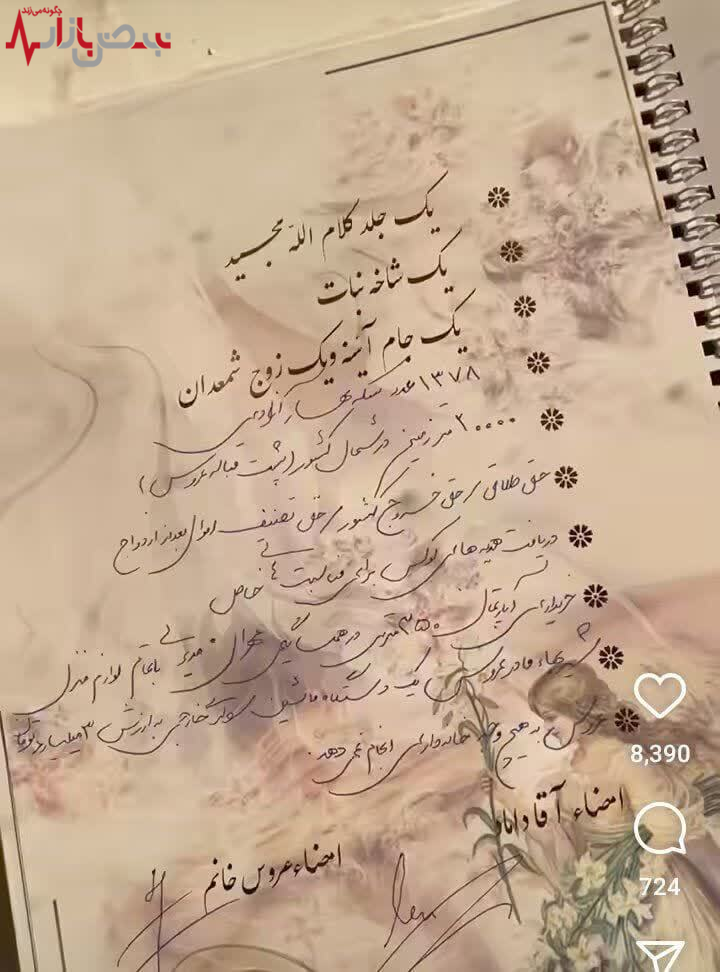 چگونه می‌زند
نبض بازار
یک جلد کلام الله مجید
یک شاخه نبات
یک جام آینه و یک زوج شمعدان
۱۳۷۸ عدد سکه بهار آزادی
۲۰۰۰۰ متر زمین در شمال کشور (پشت قباله عروس)
حق طلاق / حق خروج کشور / حق تصنیف اموال بعد از ازدواج
دریافت هدیه های لوکس برای مناسبت های خاص
خریداری آپارتمان ۳۵۰ متری در همسایگی با تمام لوازم منزل
شیربهاء مادر عروس یک دستگاه ماشین سواری خارجی به ارزش ۳ میلیارد تومان
عروس به هیچ وجه خانه‌داری انجام نمی دهد.
امضاء آقا داماد
امضاء عروس خانم
8,390
724